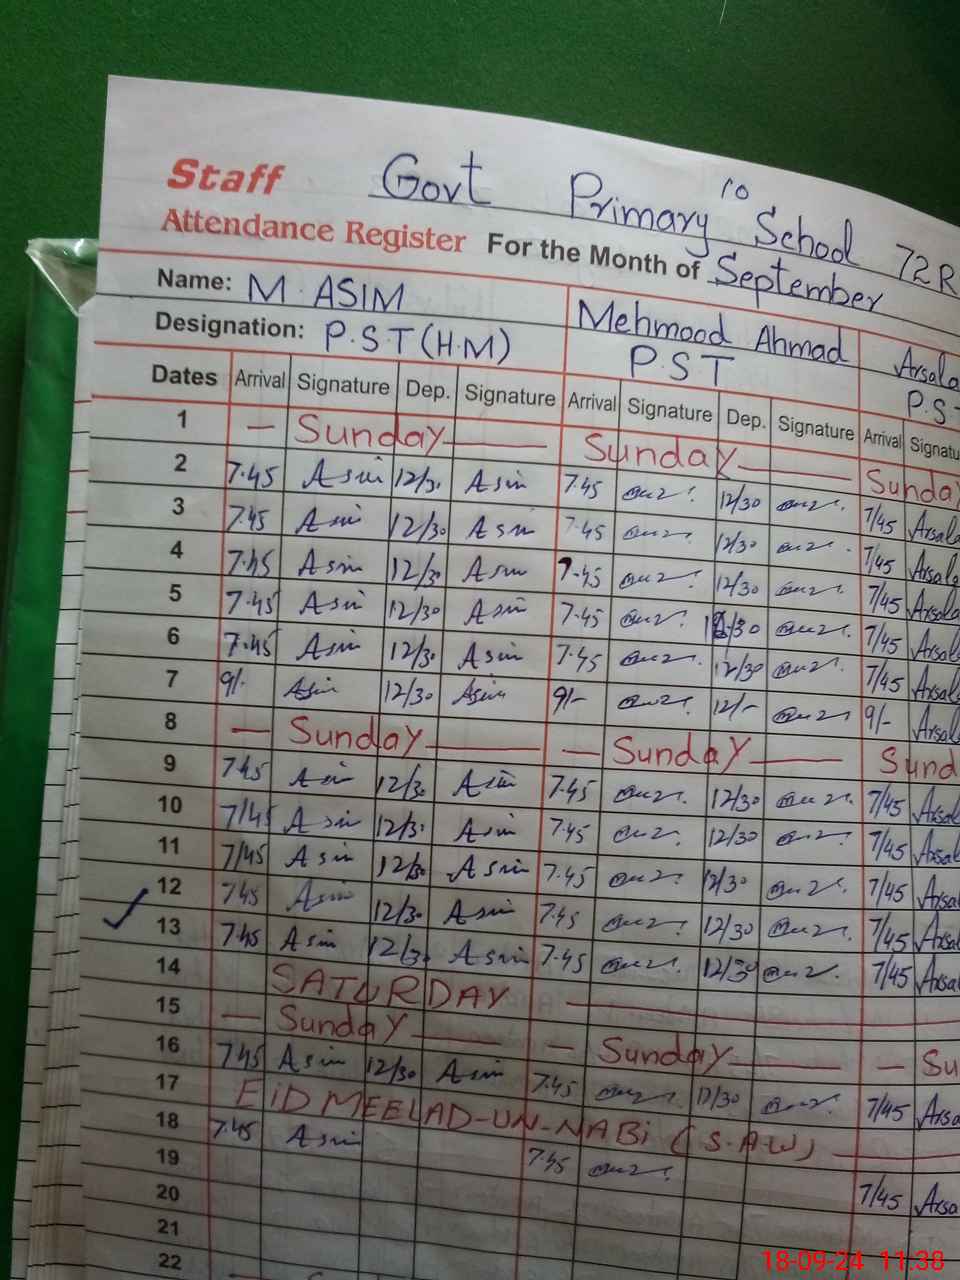 Staff Govt Primary School 72R
10
Attendance Register For the Month of September
Name: M. ASIM Mehmood Ahmad Arsala
Designation: P.S.T (H.M) P.S.T P.S.T
Dates Arrival Signature Dep. Signature Arrival Signature Dep. Signature Arrival Signatu
1 — Sunday — Sunday — Sunday
2 7.45 Asim 12/30 Asim 7.45 12/30 7/45 Arsala
3 7.45 Asim 12/30 Asim 7.45 12/30 7/45 Arsala
4 7.45 Asim 12/30 Asim 7.45 12/30 7/45 Arsala
5 7.45 Asim 12/30 Asim 7.45 12/30 7/45 Arsala
6 7.45 Asim 12/30 Asim 7.45 12/30 7/45 Arsala
7 9/- Asim 12/30 Asim 9/- 12/- 9/- Arsala
8 — Sunday — — Sunday — Sund
9 7.45 Asim 12/30 Asim 7.45 12/30 7/45 Arsala
10 7/45 Asim 12/30 Asim 7.45 12/30 7/45 Arsala
11 7/45 Asim 12/30 Asim 7.45 12/30 7/45 Arsa
12 7.45 Asim 12/30 Asim 7.45 12/30 7/45 Arsa
13 7.45 Asim 12/30 Asim 7.45 12/30 7/45 Arsa
14 SATURDAY —
15 — Sunday — — Sunday — — Su
16 7.45 Asim 12/30 Asim 7.45 12/30 7/45 Arsa
17 EiD MEELAD-UN-NABi (S.A.W) —
18 7.45 Asim 7.45 7/45 Arsa
19
20
21
22
18-09-24 11:38